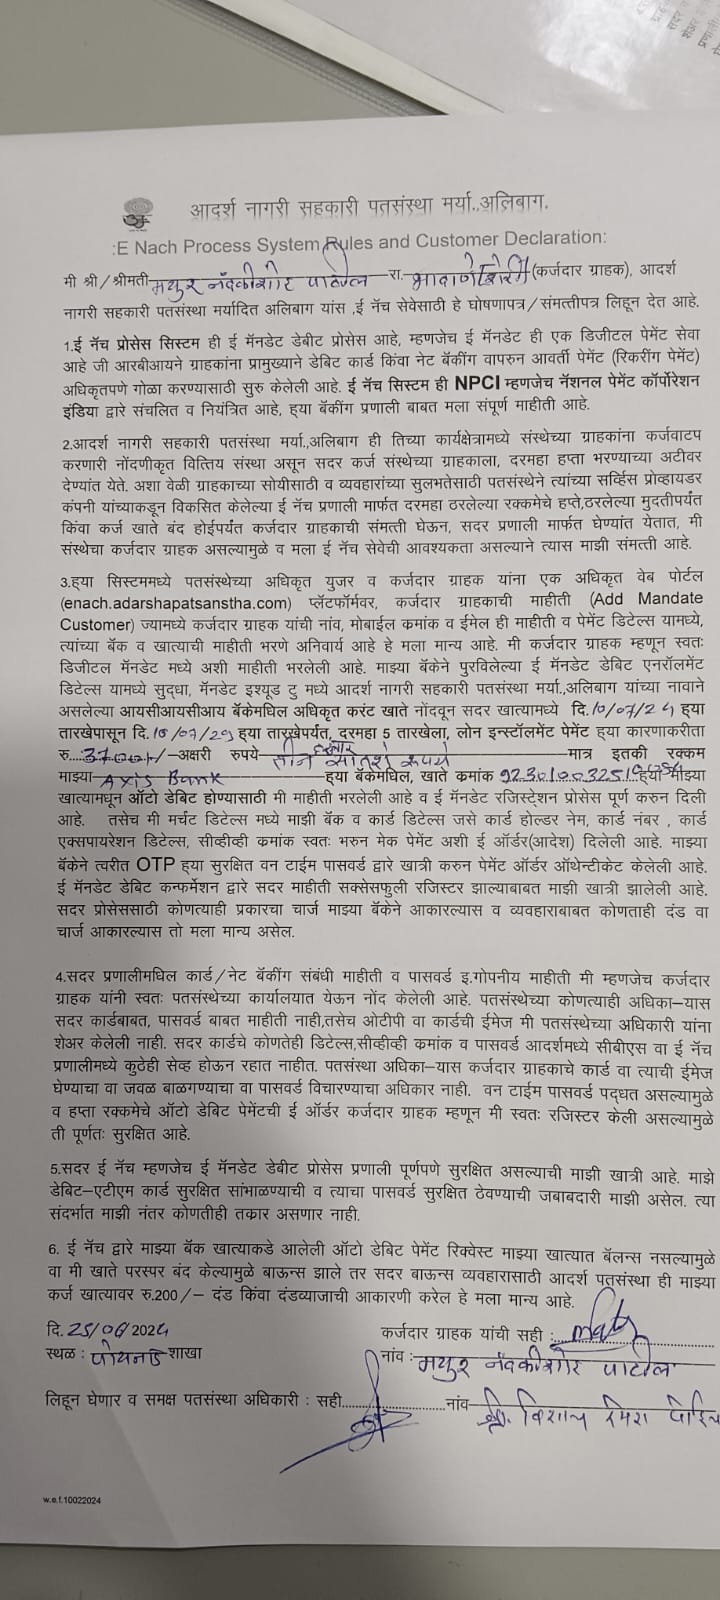 आदर्श नागरी सहकारी पतसंस्था मर्या.,अलिबाग.
:E Nach Process System Rules and Customer Declaration:
मी श्री/श्रीमती मयुर नंदकीशोर पाटील रा. (कर्जदार ग्राहक), आदर्श
नागरी सहकारी पतसंस्था मर्यादित अलिबाग यांस ,ई नॅच सेवेसाठी हे घोषणापत्र/संमत्तीपत्र लिहून देत आहे.
1.ई नॅच प्रोसेस सिस्टम ही ई मॅनडेट डेबीट प्रोसेस आहे, म्हणजेच ई मॅनडेट ही एक डिजिटल पेमेंट सेवा
आहे जी आरबीआयने ग्राहकांना प्रामुख्याने डेबिट कार्ड किंवा नेट बॅकींग वापरुन आवर्ती पेमेंट (रिकरींग पेमेंट)
अधिकृतपणे गोळा करण्यासाठी सुरु केलेली आहे. ई नॅच सिस्टम ही NPCI म्हणजेच नॅशनल पेमेंट कॉर्पोरेशन
इंडिया द्वारे संचलित व नियंत्रित आहे, ह्या बॅकींग प्रणाली बाबत मला संपूर्ण माहीती आहे.
2.आदर्श नागरी सहकारी पतसंस्था मर्या.,अलिबाग ही तिच्या कार्यक्षेत्रामध्ये संस्थेच्या ग्राहकांना कर्जवाटप
करणारी नोंदणीकृत वित्तिय संस्था असून सदर कर्ज संस्थेच्या ग्राहकाला, दरमहा हप्ता भरण्याच्या अटीवर
देण्यांत येते. अशा वेळी ग्राहकाच्या सोयीसाठी व व्यवहारांच्या सुलभतेसाठी पतसंस्थेने त्यांच्या सर्व्हिस प्रोव्हायडर
कंपनी यांच्याकडून विकसित केलेल्या ई नॅच प्रणाली मार्फत दरमहा ठरलेल्या रक्कमेचे हप्ते,ठरलेल्या मुदतीपर्यंत
किंवा कर्ज खाते बंद होईपर्यंत कर्जदार ग्राहकाची संमत्ती घेऊन, सदर प्रणाली मार्फत घेण्यांत येतात, मी
संस्थेचा कर्जदार ग्राहक असल्यामुळे व मला ई नॅच सेवेची आवश्यकता असल्याने त्यास माझी संमत्ती आहे.
3.ह्या सिस्टममध्ये पतसंस्थेच्या अधिकृत युजर व कर्जदार ग्राहक यांना एक अधिकृत वेब पोर्टल
(enach.adarshapatsanstha.com) प्लॅटफॉर्मवर, कर्जदार ग्राहकाची माहीती (Add Mandate
Customer) ज्यामध्ये कर्जदार ग्राहक यांची नांव, मोबाईल कमांक व ईमेल ही माहीती व पेमेंट डिटेल्स यामध्ये,
त्यांच्या बॅक व खात्याची माहीती भरणे अनिवार्य आहे हे मला मान्य आहे. मी कर्जदार ग्राहक म्हणून स्वतः
डिजीटल मॅनडेट मध्ये अशी माहीती भरलेली आहे. माझ्या बॅकेने पुरविलेल्या ई मॅनडेट डेबिट एनरॉलमेंट
डिटेल्स यामध्ये सुद्धा, मॅनडेट इश्यूड टु मध्ये आदर्श नागरी सहकारी पतसंस्था मर्या.,अलिबाग यांच्या नावाने
असलेल्या आयसीआयसीआय बॅकेमधिल अधिकृत करंट खाते नोंदवून सदर खात्यामध्ये दि.10/07/24 ह्या
तारखेपासून दि.10/07/29 ह्या तारखेपर्यंत, दरमहा 5 तारखेला, लोन इन्स्टॉलमेंट पेमेंट ह्या कारणाकरीता
रु. 3700/-अक्षरी रुपये तीन हजार सातशे रुपये मात्र इतकी रक्कम
माझ्या Axis Bank ह्या बॅकेमधिल, खाते कमांक ह्या माझ्या
खात्यामधून ऑटो डेबिट होण्यासाठी मी माहीती भरलेली आहे व ई मॅनडेट रजिस्ट्रेशन प्रोसेस पूर्ण करुन दिली
आहे. तसेच मी मर्चंट डिटेल्स मध्ये माझी बॅक व कार्ड डिटेल्स जसे कार्ड होल्डर नेम, कार्ड नंबर , कार्ड
एक्सपायरेशन डिटेल्स, सीव्हीव्ही कमांक स्वतः भरुन मेक पेमेंट अशी ई ऑर्डर(आदेश) दिलेली आहे. माझ्या
बॅकेने त्वरीत OTP ह्या सुरक्षित वन टाईम पासवर्ड द्वारे खात्री करुन पेमेंट ऑर्डर ऑथेन्टीकेट केलेली आहे.
ई मॅनडेट डेबिट कन्फर्मेशन द्वारे सदर माहीती सक्सेसफुली रजिस्टर झाल्याबाबत माझी खात्री झालेली आहे.
सदर प्रोसेससाठी कोणत्याही प्रकारचा चार्ज माझ्या बॅकेने आकारल्यास व व्यवहाराबाबत कोणताही दंड वा
चार्ज आकारल्यास तो मला मान्य असेल.
4.सदर प्रणालीमधिल कार्ड/नेट बॅकींग संबंधी माहीती व पासवर्ड इ.गोपनीय माहीती मी म्हणजेच कर्जदार
ग्राहक यांनी स्वतः पतसंस्थेच्या कार्यालयात येऊन नोंद केलेली आहे. पतसंस्थेच्या कोणत्याही अधिका–यास
सदर कार्डबाबत, पासवर्ड बाबत माहीती नाही,तसेच ओटीपी वा कार्डची ईमेज मी पतसंस्थेच्या अधिकारी यांना
शेअर केलेली नाही. सदर कार्डचे कोणतेही डिटेल्स,सीव्हीव्ही कमांक व पासवर्ड आदर्शमध्ये सीबीएस वा ई नॅच
प्रणालीमध्ये कुठेही सेव्ह होऊन रहात नाहीत. पतसंस्था अधिका–यास कर्जदार ग्राहकाचे कार्ड वा त्याची ईमेज
घेण्याचा वा जवळ बाळगण्याचा वा पासवर्ड विचारण्याचा अधिकार नाही. वन टाईम पासवर्ड पद्धत असल्यामुळे
व हप्ता रक्कमेचे ऑटो डेबिट पेमेंटची ई ऑर्डर कर्जदार ग्राहक म्हणून मी स्वतः रजिस्टर केली असल्यामुळे
ती पूर्णतः सुरक्षित आहे.
5.सदर ई नॅच म्हणजेच ई मॅनडेट डेबीट प्रोसेस प्रणाली पूर्णपणे सुरक्षित असल्याची माझी खात्री आहे. माझे
डेबिट–एटीएम कार्ड सुरक्षित सांभाळण्याची व त्याचा पासवर्ड सुरक्षित ठेवण्याची जबाबदारी माझी असेल. त्या
संदर्भात माझी नंतर कोणतीही तकार असणार नाही.
6. ई नॅच द्वारे माझ्या बॅक खात्याकडे आलेली ऑटो डेबिट पेमेंट रिक्वेस्ट माझ्या खात्यात बॅलन्स नसल्यामुळे
वा मी खाते परस्पर बंद केल्यामुळे बाऊन्स झाले तर सदर बाऊन्स व्यवहारासाठी आदर्श पतसंस्था ही माझ्या
कर्ज खात्यावर रु.200/– दंड किंवा दंडव्याजाची आकारणी करेल हे मला मान्य आहे.
दि. 25/06/2024 कर्जदार ग्राहक यांची सही :
स्थळ : पोयनाड शाखा नांव : मयुर नंदकीशोर पाटील
लिहून घेणार व समक्ष पतसंस्था अधिकारी : सही नांव श्री. विशाल रमेश
w.e.f.10022024